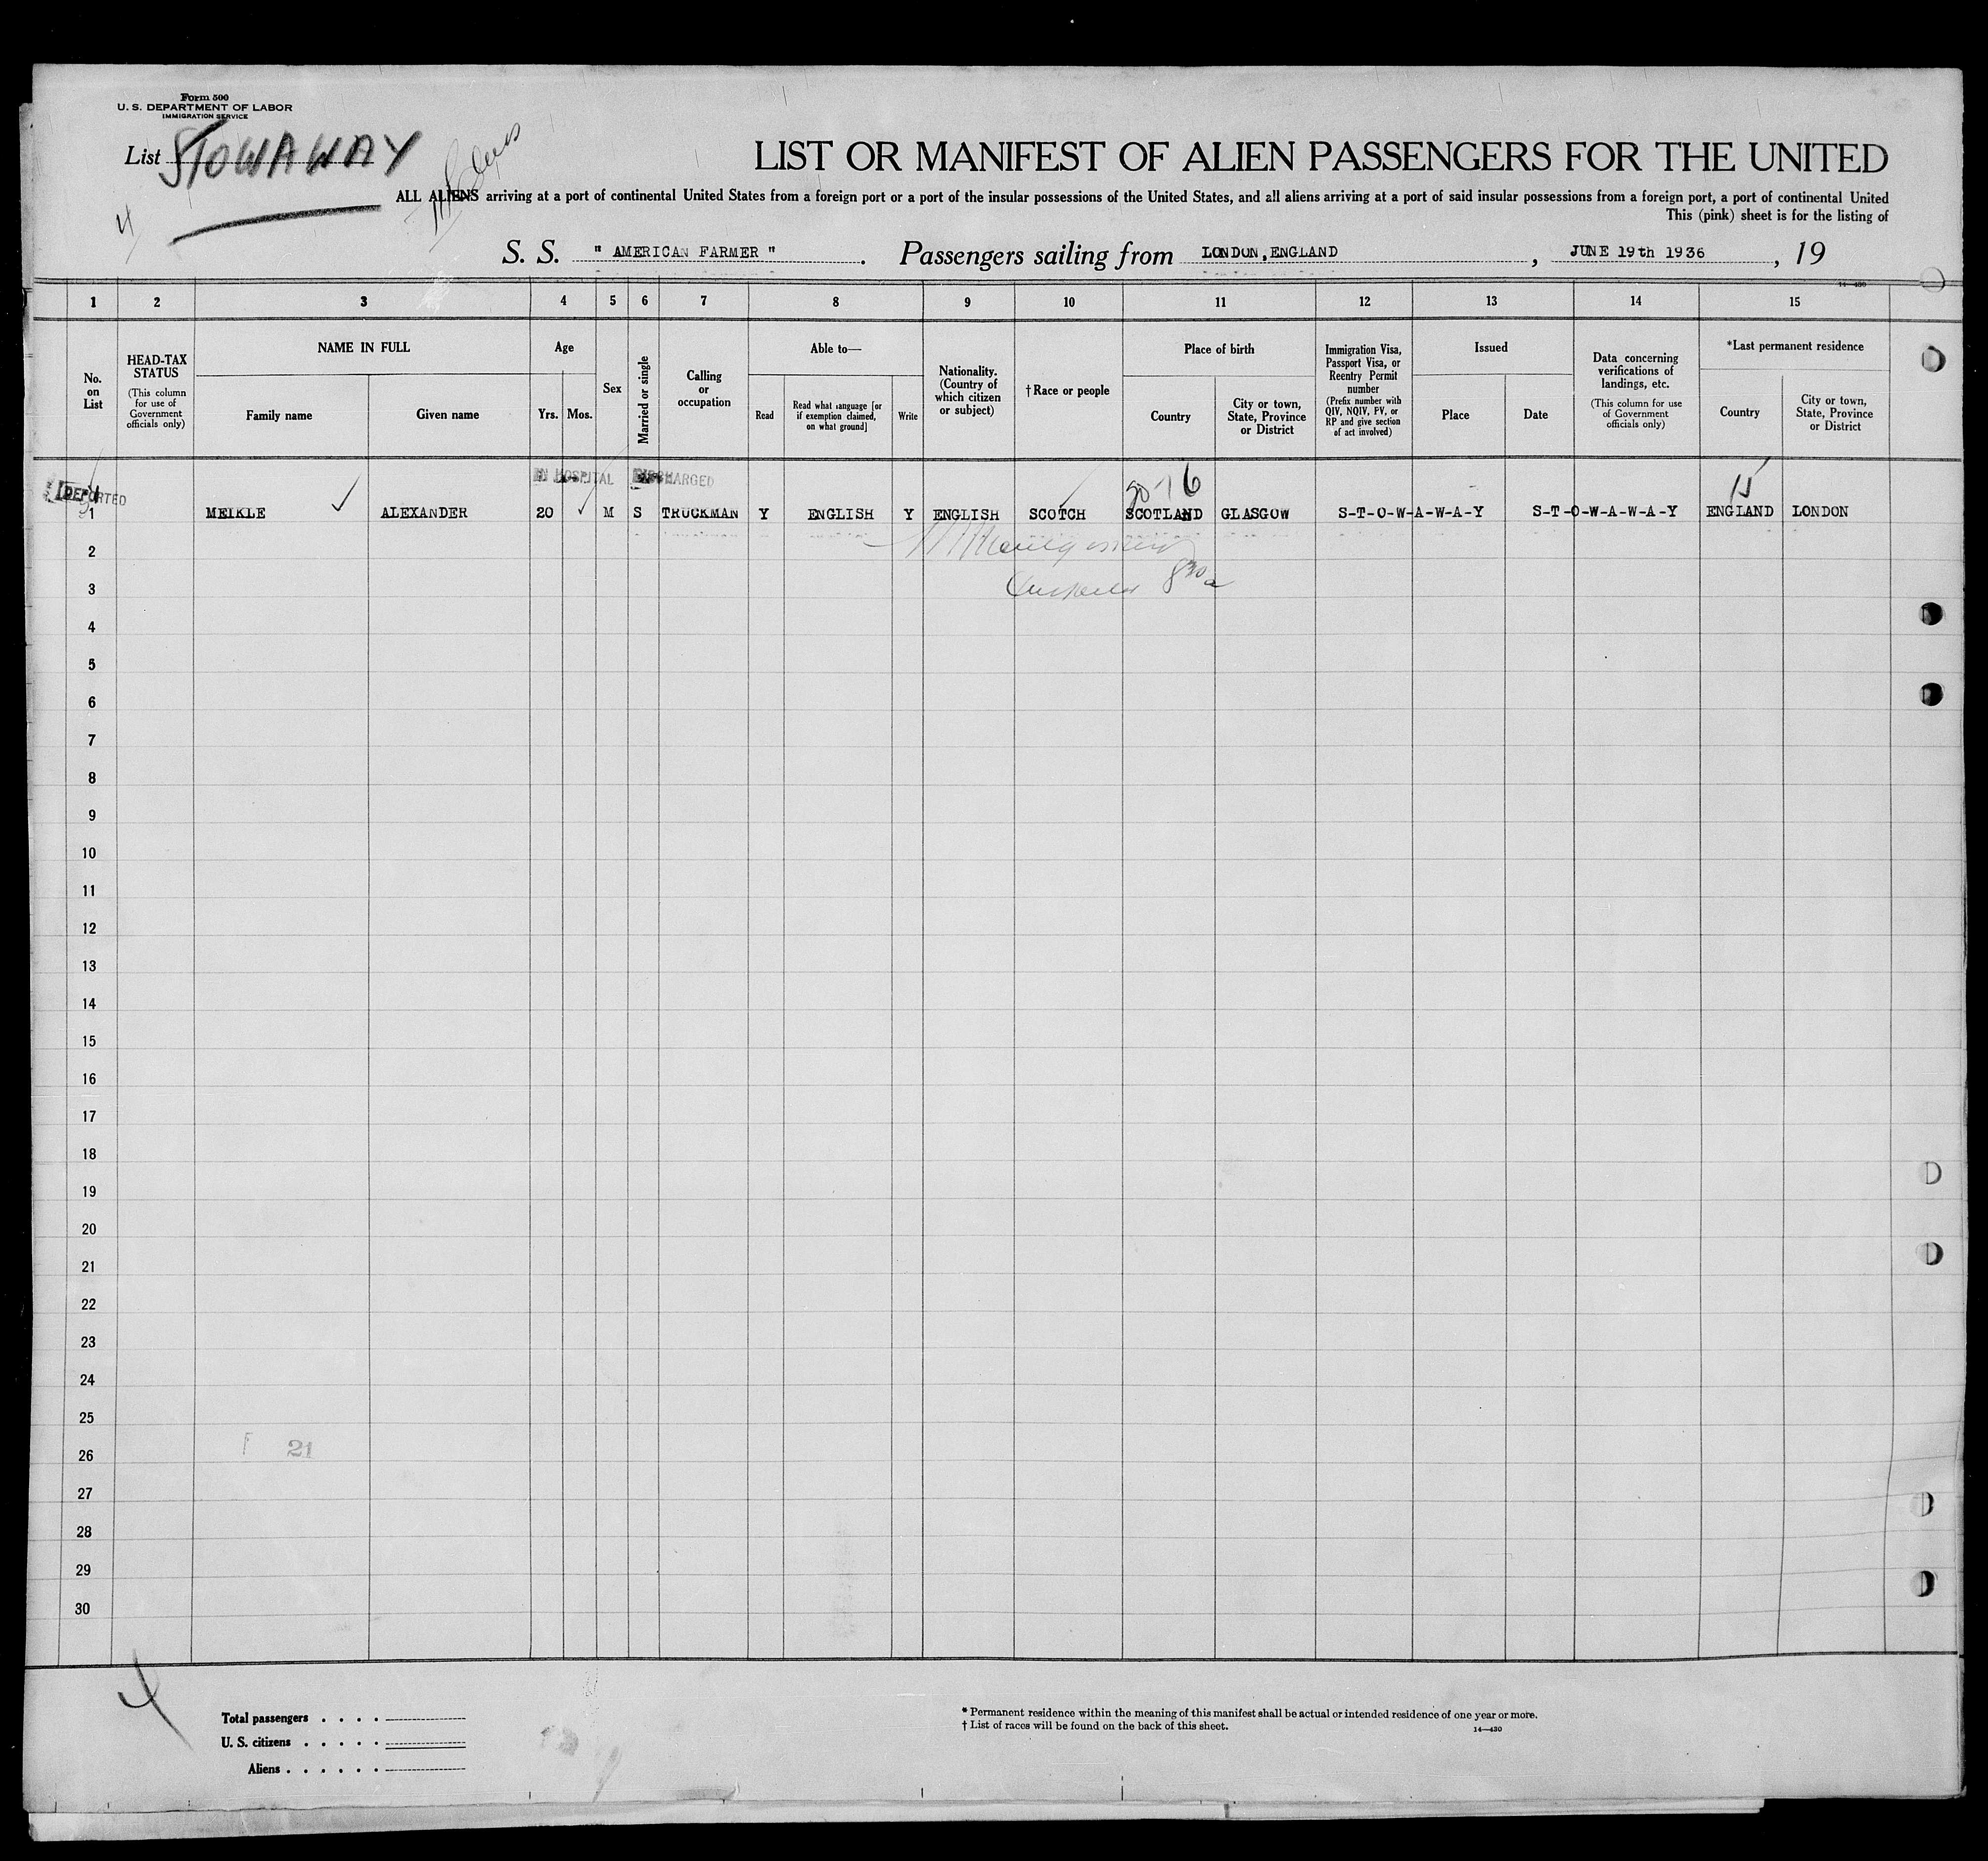 Form 500
U. S. DEPARTMENT OF LABOR
IMMIGRATION SERVICE
List STOWAWAY
LIST OR MANIFEST OF ALIEN PASSENGERS FOR THE UNITED
ALL ALIENS arriving at a port of continental United States from a foreign port or a port of the insular possessions of the United States, and all aliens arriving at a port of said insular possessions from a foreign port, a port of continental United
This (pink) sheet is for the listing of
S. S. " AMERICAN FARMER " . Passengers sailing from LONDON, ENGLAND , JUNE 19th 1936 , 19
14—430
1 2 3 4 5 6 7 8 9 10 11 12 13 14 15
No. on List
HEAD-TAX STATUS
(This column for use of Government officials only)
NAME IN FULL
Family name
Given name
Age
Yrs.
Mos.
Sex
Married or single
Calling or occupation
Able to—
Read
Read what language [or if exemption claimed, on what ground]
Write
Nationality. (Country of which citizen or subject)
† Race or people
Place of birth
Country
City or town, State, Province or District
Immigration Visa, Passport Visa, or Reentry Permit number
(Prefix number with QIV, NQIV, PV, or RP and give section of act involved)
Issued
Place
Date
Data concerning verifications of landings, etc.
(This column for use of Government officials only)
*Last permanent residence
Country
City or town, State, Province or District
IN HOSPITAL DISCHARGED
DEPORTED
1 MEIKLE ALEXANDER 20 M S TRUCKMAN Y ENGLISH Y ENGLISH SCOTCH SCOTLAND GLASGOW S-T-O-W-A-W-A-Y S-T-O-W-A-W-A-Y ENGLAND LONDON
2
3
4
5
6
7
8
9
10
11
12
13
14
15
16
17
18
19
20
21
22
23
24
25
26
21
27
28
29
30
Total passengers . . . .
U. S. citizens . . . . .
Aliens . . . . . .
* Permanent residence within the meaning of this manifest shall be actual or intended residence of one year or more.
† List of races will be found on the back of this sheet.
14—430